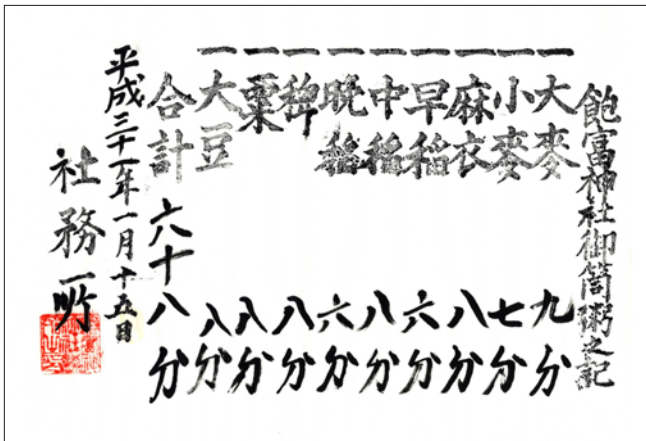 飽富神社御筒粥之記
一大麥 九分
一小麥 七分
一麻衣 八分
一早稲 六分
一中稲 八分
一晩稲 六分
一稗 八分
一粟 八分
一大豆 八分
合計 六十八分
平成三十一年一月十五日
社務所